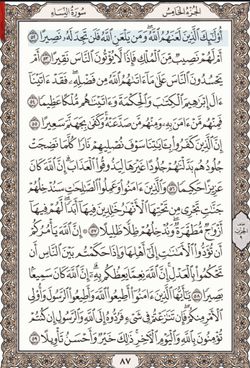 سُورَةُ النِّسَاءِ
الجُزْءُ الخَامِسُ
أُوْلَٰٓئِكَ ٱلَّذِينَ لَعَنَهُمُ ٱللَّهُۖ وَمَن يَلْعَنِ ٱللَّهُ فَلَن تَجِدَ لَهُۥ نَصِيرًا ٥٢
أَمْ لَهُمْ نَصِيبٌ مِّنَ ٱلْمُلْكِ فَإِذًا لَّا يُؤْتُونَ ٱلنَّاسَ نَقِيرًا ٥٣ أَمْ
يَحْسُدُونَ ٱلنَّاسَ عَلَىٰ مَآ ءَاتَىٰهُمُ ٱللَّهُ مِن فَضْلِهِۦۖ فَقَدْ ءَاتَيْنَآ
ءَالَ إِبْرَٰهِيمَ ٱلْكِتَٰبَ وَٱلْحِكْمَةَ وَءَاتَيْنَٰهُم مُّلْكًا عَظِيمًا ٥٤
فَمِنْهُم مَّنْ ءَامَنَ بِهِۦ وَمِنْهُم مَّن صَدَّ عَنْهُۚ وَكَفَىٰ بِجَهَنَّمَ سَعِيرًا ٥٥
إِنَّ ٱلَّذِينَ كَفَرُواْ بِـَٔايَٰتِنَا سَوْفَ نُصْلِيهِمْ نَارًا كُلَّمَا نَضِجَتْ
جُلُودُهُم بَدَّلْنَٰهُمْ جُلُودًا غَيْرَهَا لِيَذُوقُواْ ٱلْعَذَابَۗ إِنَّ ٱللَّهَ كَانَ
عَزِيزًا حَكِيمًا ٥٦ وَٱلَّذِينَ ءَامَنُواْ وَعَمِلُواْ ٱلصَّٰلِحَٰتِ سَنُدْخِلُهُمْ
جَنَّٰتٍ تَجْرِي مِن تَحْتِهَا ٱلْأَنْهَٰرُ خَٰلِدِينَ فِيهَآ أَبَدًاۖ لَّهُمْ فِيهَآ
أَزْوَٰجٌ مُّطَهَّرَةٌۖ وَنُدْخِلُهُمْ ظِلًّا ظَلِيلًا ٥٧ إِنَّ ٱللَّهَ يَأْمُرُكُمْ
أَن تُؤَدُّواْ ٱلْأَمَٰنَٰتِ إِلَىٰٓ أَهْلِهَا وَإِذَا حَكَمْتُم بَيْنَ ٱلنَّاسِ أَن
تَحْكُمُواْ بِٱلْعَدْلِۚ إِنَّ ٱللَّهَ نِعِمَّا يَعِظُكُم بِهِۦٓۗ إِنَّ ٱللَّهَ كَانَ سَمِيعًۢا
بَصِيرًا ٥٨ يَٰٓأَيُّهَا ٱلَّذِينَ ءَامَنُوٓاْ أَطِيعُواْ ٱللَّهَ وَأَطِيعُواْ ٱلرَّسُولَ وَأُوْلِي
ٱلْأَمْرِ مِنكُمْۖ فَإِن تَنَٰزَعْتُمْ فِي شَيْءٍ فَرُدُّوهُ إِلَى ٱللَّهِ وَٱلرَّسُولِ إِن كُنتُمْ
تُؤْمِنُونَ بِٱللَّهِ وَٱلْيَوْمِ ٱلْأٓخِرِۚ ذَٰلِكَ خَيْرٌ وَأَحْسَنُ تَأْوِيلًا ٥٩
٨٧